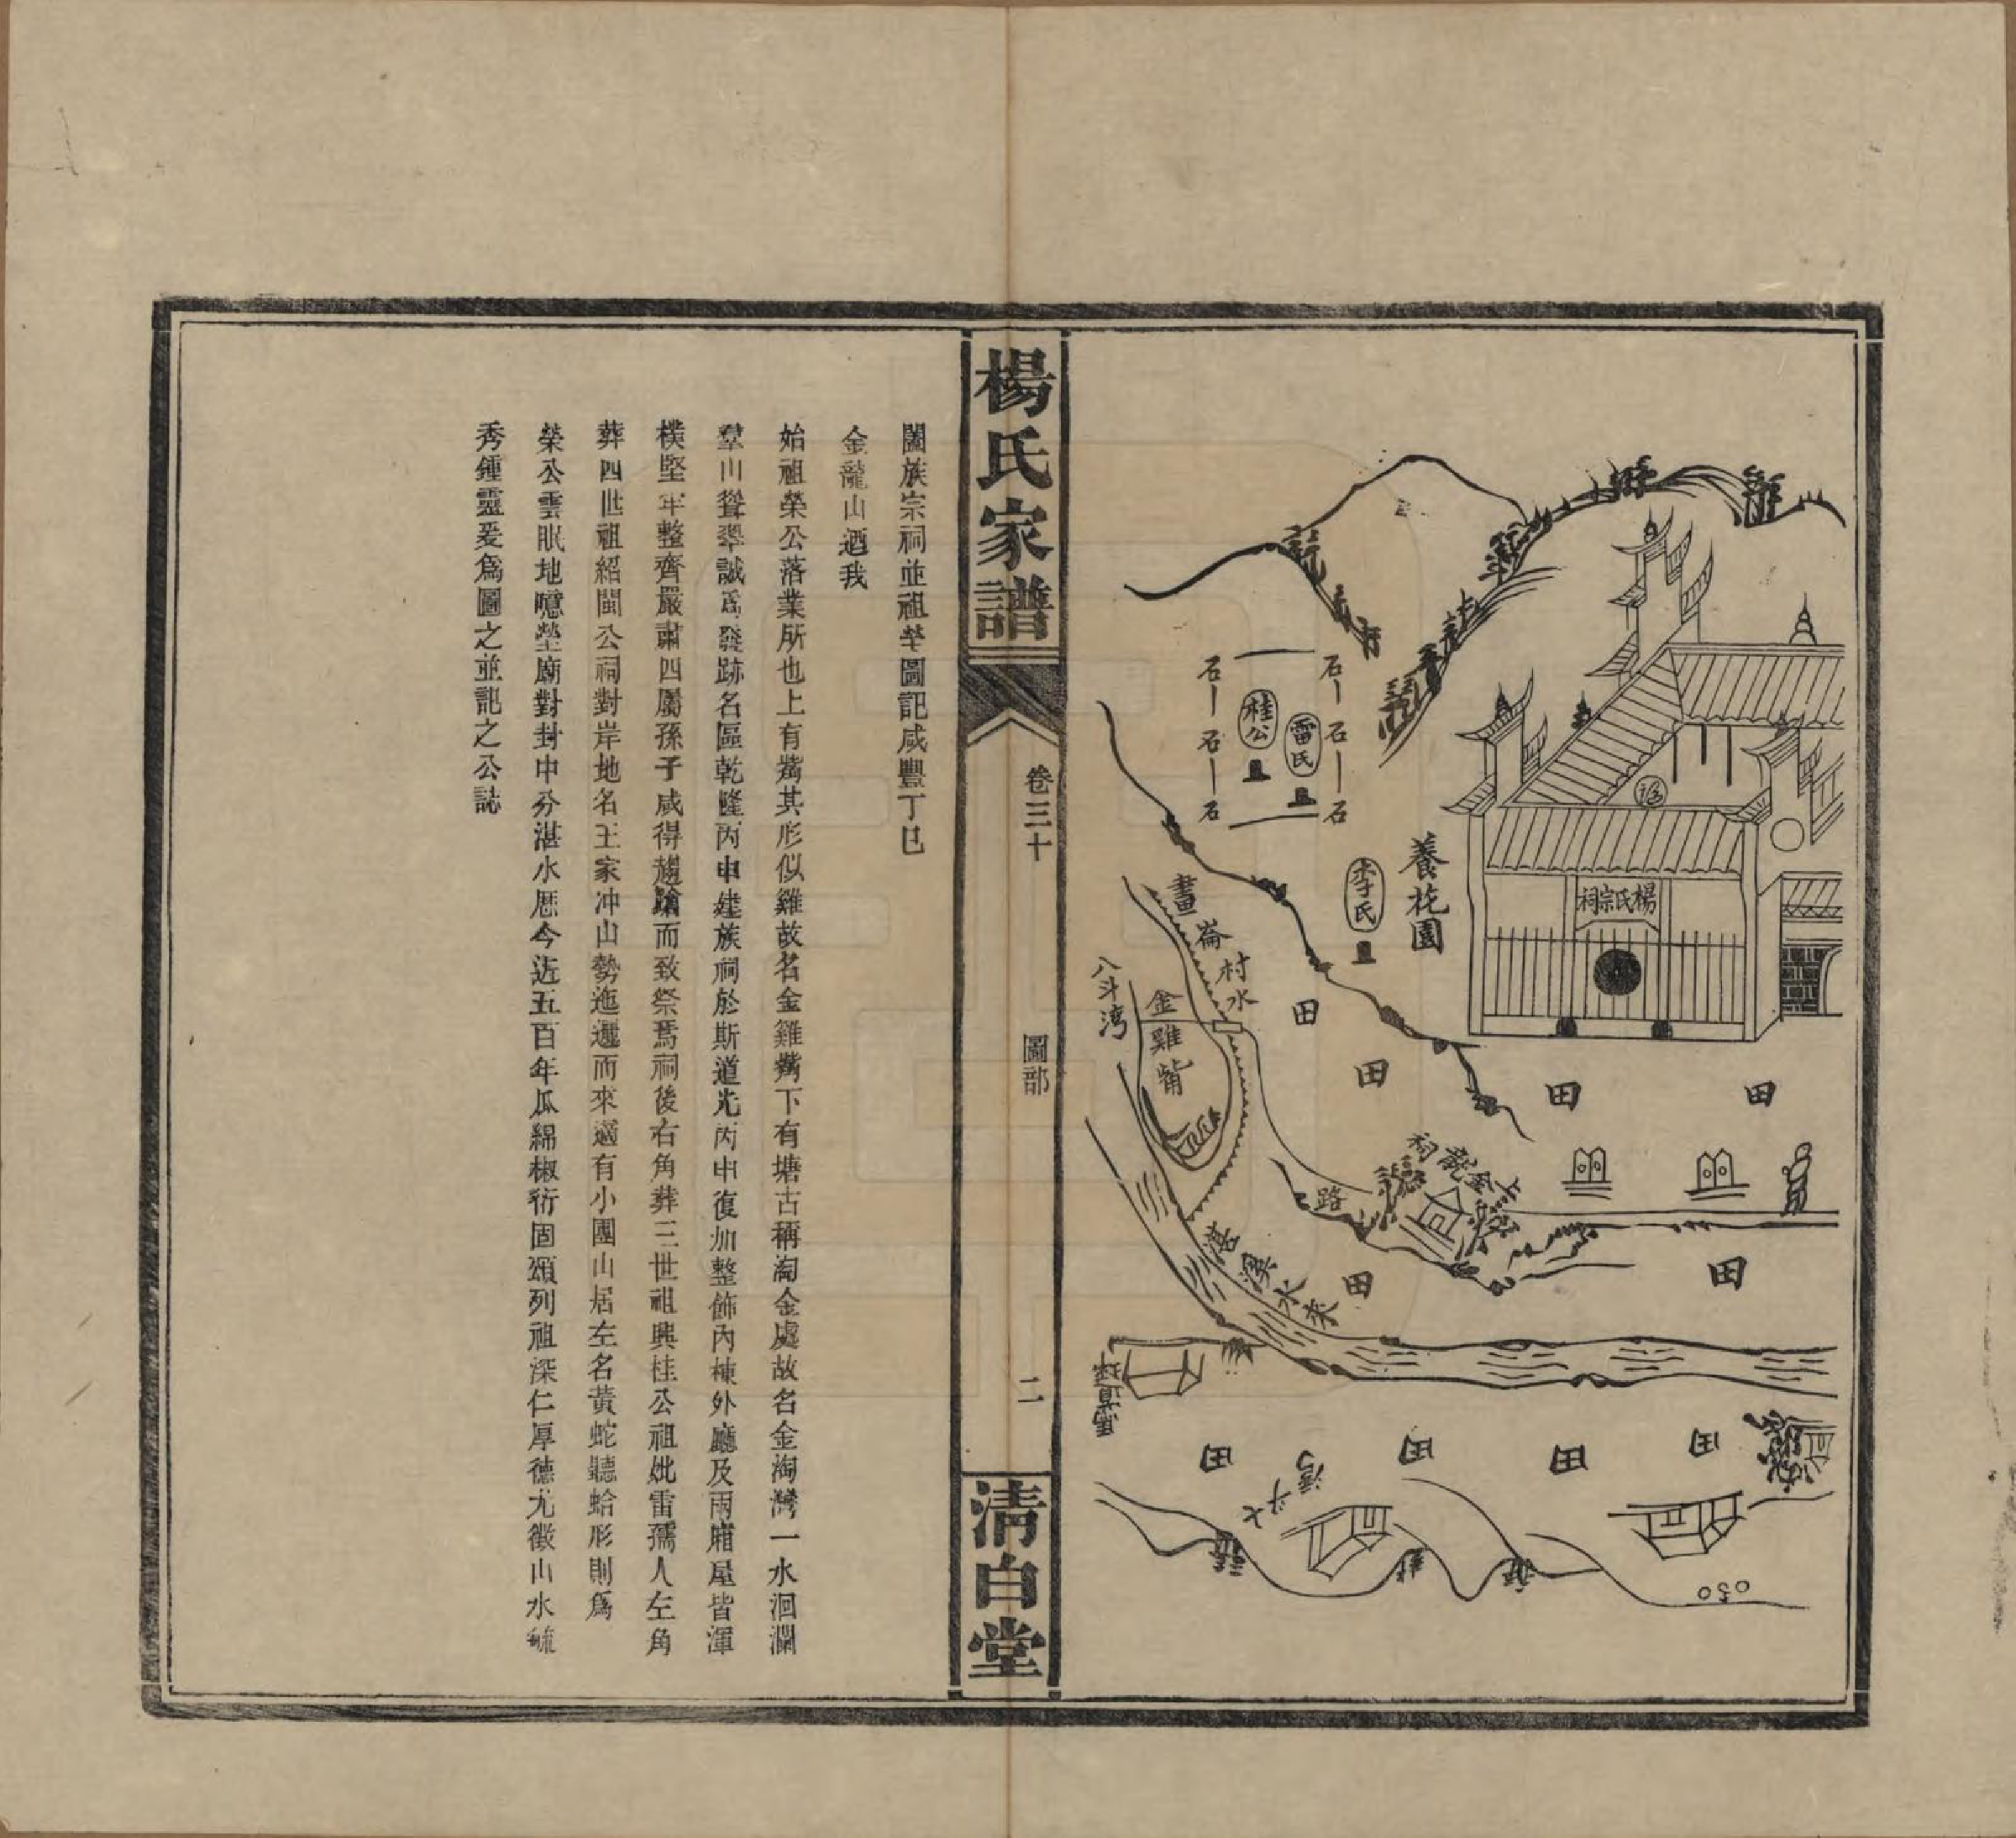 楊氏宗祠
養花園
石
石
石
雷氏
桂公
石
石
石
李氏
田
田
田
田
畫崙村水
金雞嘴
八斗湾
上金龍祠
路
田
田
湛溪水來
田
田
田
田
七斗湾
楊氏家譜
卷三十
圖部
二
清白堂
闔族宗祠並祖塋圖記咸豐丁巳
金龍山迺我
始祖榮公落業所也上有嘴其形似雞故名金雞嘴下有塘古稱淘金處故名金淘灣一水洄瀾
羣山聳翠誠爲發跡名區乾隆丙申建族祠於斯道光丙申復加整飾內棟外廳及兩廂屋皆渾
樸堅牢整齊嚴肅四屬孫子咸得趨蹌而致祭焉祠後右角葬三世祖興桂公祖妣雷孺人左角
葬四世祖紹聞公祠對岸地名王家冲山勢迤邐而來適有小團山居左名黃蛇聽蛤形則爲
榮公雲眠地噫塋廟對封中分湛水歷今迏五百年瓜綿椒衍固頌列祖深仁厚德尤徵山水毓
秀鍾靈爰爲圖之並記之公誌